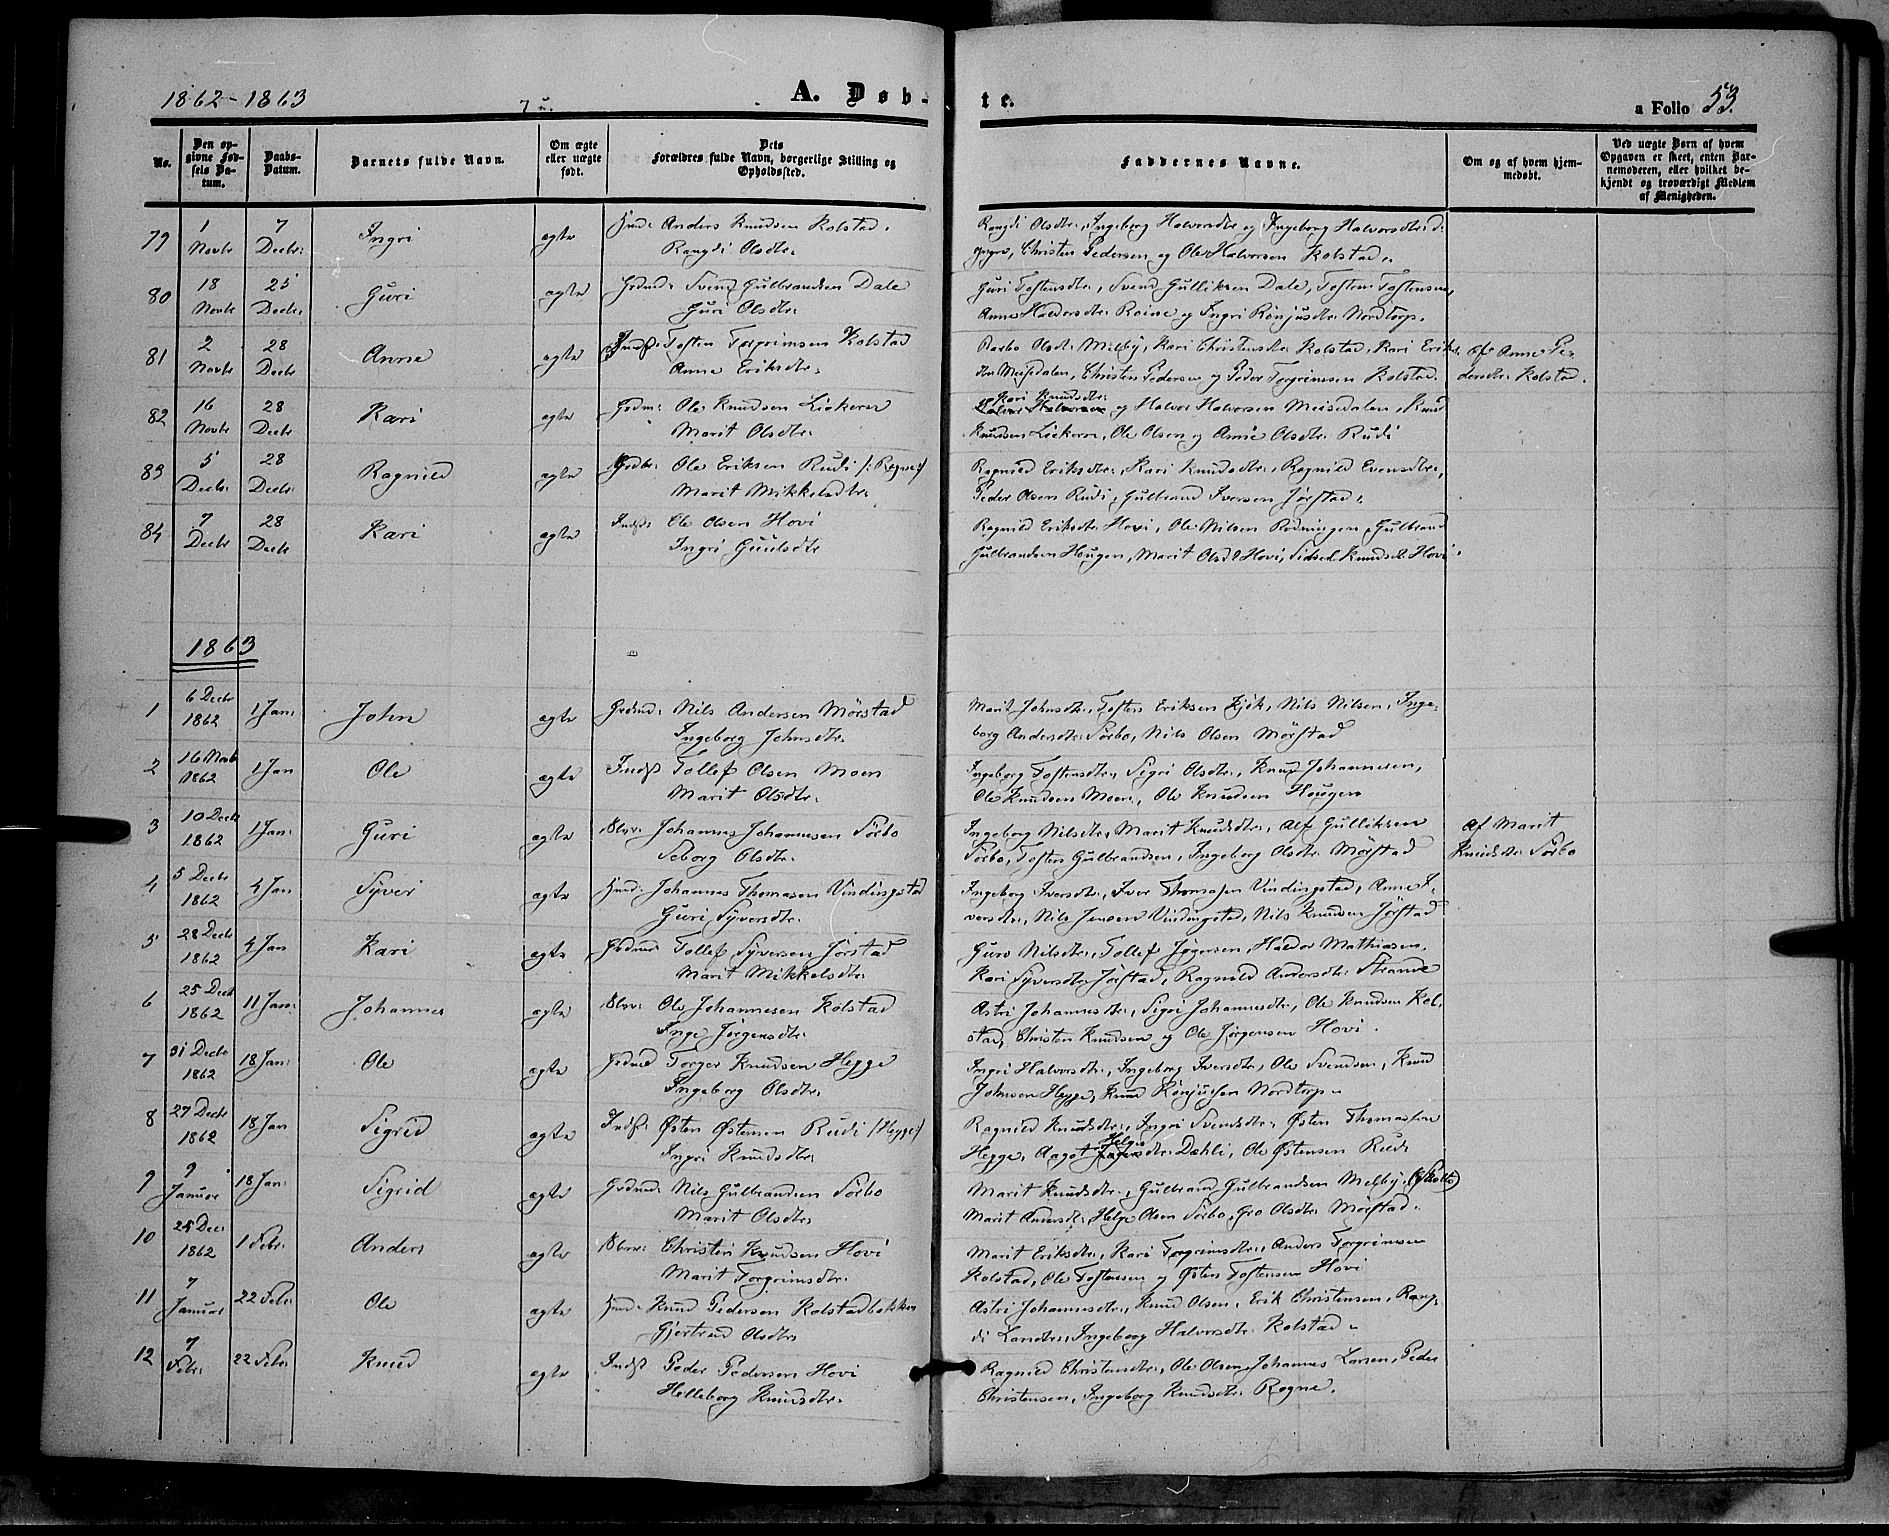 1862-1863
A. Døb-
te.
a Folio 53.
No.
Den op-
givne Fød-
sels Da-
tum.
Daabs-
Datum.
Barnets fulde Navn.
Om ægte
eller uægte
født.
Dets
Forældres fulde Navn, borgerlige Stilling og
Opholdssted.
Faddernes Navne.
Om og af hvem hjem-
medøbt.
Ved uægte Børn af hvem
Opgaven er skeet, enten Bar-
nemoderen, eller hvilket be-
kjendt og troværdigt Medlem
af Menigheden.
79 1 Novbr 7 Decbr: Ingri ægte Hmd: Anders Knudsen Kolstad.
Rangdi Olsdtr.
Rangdi Olsdtr., Ingeborg Halvorsdtr og Ingeborg Halvorsdtr: d.
yngre, Christen Pedersen og Ole Halvorsen Kolstad.
80 18 Novbr 25 Decbr: Guri ægte Grdmd: Svend Gulbrandsen Dale
Guri Olsdtr.
Guri Tostensdtr., Svend Gulliksen Dale, Tosten Tostensen,
Anne Haldorsdtr. Roine og Ingri Ronjusdtr. Nordtorp.
81 2 Novbr 28 Decbr Anne ægte Indst: Tosten Torgrimsen Kolstad
Anne Eriksdtr.
Barbo Olsdtr Melby, Kari Christensdtr. Kolstad, Kari Eriks-
dtr Meisedalen, Christen Pedersen og Peder Torgrimsen Kolstad.
af Anne Pe-
dersdtr. Kolstad.
82 16 Novbr 28 Decbr Kari ægte Grdm: Ole Knudsen Liekern
Marit Olsdtr.
Kari Knudsdtr:
og Halvor Halvorsen Meisedalen, Knud
Knudsen Liekern, Ole Olsen og Anne Olsdtr. Rudi
83 5 Decbr: 28 Decbr: Ragnild ægte Grdbr: Ole Eriksen Rudi /: Rogne:/
Marit Mikkelsdtr.
Ragnild Eriksdtr., Kari Knudsdtr., Ragnild Evensdtr.,
Peder Olsen Rudi, Gulbrand Iversen Jørstad.
84 7 Decbr 28 Decbr Kari ægte Indst: Ole Olsen Hovi
Ingri Guulsdtr
Ragnild Eriksdtr Hovi, Ole Nilsen Rødningen, Gulbrand
Gulbrandsen Hougen, Marit Olsdtr Hovi, Sidsel Knudsdtr Hovi.
1863
1 6 Decbr 1862 1 Jan: John ægte Grdmd: Nils Andersen Mørstad
Ingeborg Johnsdtr.
Marit Johnsdtr., Tosten Eriksen Kjøk, Nils Nilsen, Inge-
borg Andersdtr. Sørbo, Nils Olsen Mørstad
2 16 Novb 1862 1 Jan Ole ægte Indst Tollef Olsen Moen
Marit Olsdtr.
Ingeborg Tostensdtr., Sigri Olsdtr., Knud Johannesen,
Ole Knudsen Moen, Ole Knudsen Hougen
3 10 Decbr 1862 1 Jan: Guri ægte Johannes Johannesen Sørbo
Seborg Olsdtr.
Ingeborg Nilsdtr., Marit Knudsdtr., Alf Gulliksen
Sørbo, Tosten Gulbrandsen, Ingeborg Olsdtr Mørstad
Af Marit
Knudsdtr. Sørbo
4 5 Decbr 1862 4 Jan Syver ægte Hmd: Johannes Thomasen Vindingstad
Guri Syversdtr.
Ingeborg Iversdtr., Iver Thomasen Vindingstad, Anne I-
versdtr., Nils Jensen Vindingstad, Nils Knudsen Jørstad
5 28 Decbr 1862 4 Jan Kari ægte Grdmd: Tollef Syversen Jørstad
Marit Mikkelsdtr.
Guro Nilsdtr., Tollef Jøgersen, Haldor Mathiasen,
Kari Syversdtr Jørstad, Ragnild Andersdtr. Strande
6 25 Decb 1862 11 Jan: Johannes ægte Ole Johannesen Kolstad
Inge Jørgensdtr.
Astri Johannesdtr., Sigri Johannesdtr., Ole Knudsen Kol-
stad, Christen Knudsen og Ole Jørgensen Hovi.
7 31 Decbr 1862 18 Jan: Ole ægte Grdmd Torger Knudsen Hegge
Ingeborg Olsdtr.
Ingri Halvorsdtr., Ingeborg Iversdtr., Ole Svendsen, Knud
Johnsen Hegge, Knud Ronjusen Nordtorp.
8 27 Decbr 1862 18 Jan Sigrid ægte Indst: Østen Østensen Rudi /Hegge:/
Ingri Knudsdtr:
Ragnild Knudsdtr., Ingri Svendsdtr., Østen Thomassen
Helges
Hegge, Aagot dtr: Dæhli, Ole Østensen Rudi
9 9 Januar 18 Jan: Sigrid ægte Grdmd: Nils Gulbrandsen Sørbo
Marit Olsdtr.
Marit Knudsdtr., Gulbrand Gulbrandsen Melby,
Marit Andersdtr., Helge Olsen Sørbo, Gro Olsdtr. Mørstad.
10 25 Decbr 1862 1 Febr: Anders ægte Christen Knudsen Hovi
Marit Torgrimsdtr.
Marit Eriksdtr., Kari Torgrimsdtr., Anders Torgrimsen
Kolstad, Ole Tostensen og Østen Tostensen Hovi
11 7 Januar 22 Febr: Ole ægte Hmd: Knud Pedersen Kolstadbakken
Gjertrud Olsdtr
Astri Johannesdtr., Knud Olsen, Erik Christensen, Rang-
di Larsdtr., Ingeborg Halvorsdtr. Kolstad.
12 7 Febr: 22 Febr: Knud ægte Indst Peder Pedersen Hovi
Helleborg Knudsdtr.
Ragnild Christensdtr., Ole Olsen, Johannes Larsen, Peder
Christensen, Ingeborg Knudsdtr. Rogne.